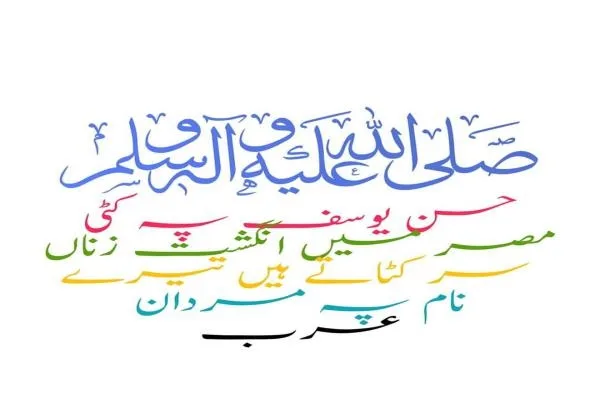 صلى الله عليه وآله وسلم
حسن یوسف پہ کٹی
مصر میں انگشت زناں
سر کٹاتے ہیں تیرے
نام پہ مردان
عرب